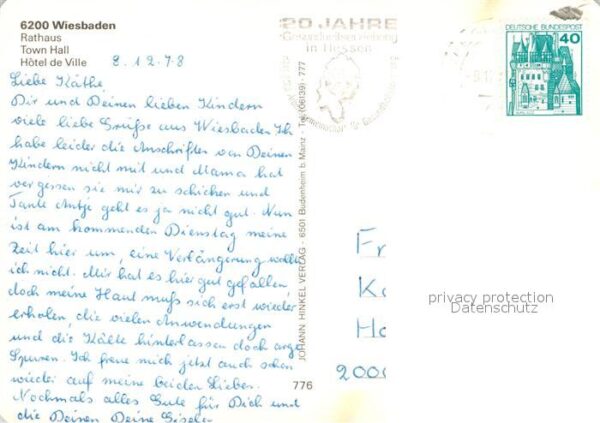 6200 Wiesbaden
Rathaus
Town Hall
Hôtel de Ville
8.12.78
Liebe Käthe,
Dir und Deinen lieben Kindern
viele liebe Grüße aus Wiesbaden. Ich
habe leider die Anschriften von Deinen
Kindern nicht mit und Mama hat
vergessen sie mir zu schicken und
Tante Antje geht es ja nicht gut. Nun
ist am kommenden Dienstag meine
Zeit hier um, eine Verlängerung wollte
ich nicht. Mir hat es hier gut gefallen,
doch meine Haut muß sich erst wieder
erholen, die vielen Anwendungen
und die Kälte hinterlassen doch arge
Spuren. Ich freue mich jetzt auch schon
wieder auf meine beiden Lieben.
Nochmals alles Gute für Dich und
die Deinen Deine Gisela
20 JAHRE
Gesundheitserziehung
in Hessen
DEUTSCHE BUNDESPOST
40
JOHANN HINKEL VERLAG - 6501 Budenheim b. Mainz - Tel. (06139) - 777
776
Fr
Ka
Ha
2000
privacy protection
Datenschutz